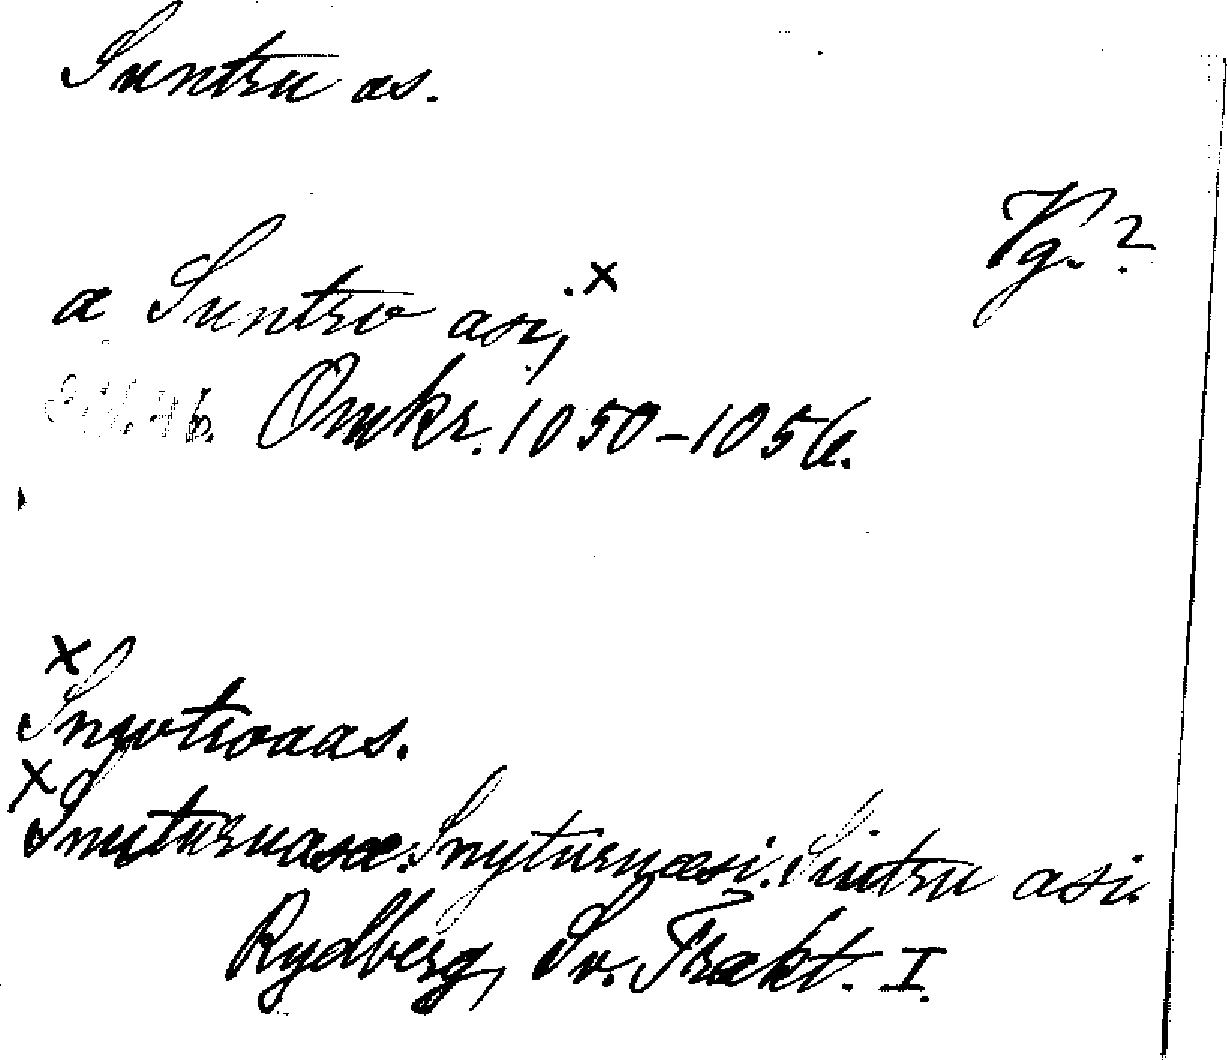 Suntru as.
Vg.?
a Suntro asi, .x
Omkr. 1050-1056.
x
Snyotroaas.
x
Snuturuasæ. Snyturuæsi. Siutru asi.
Rydberg, Sv. Trakt. I.